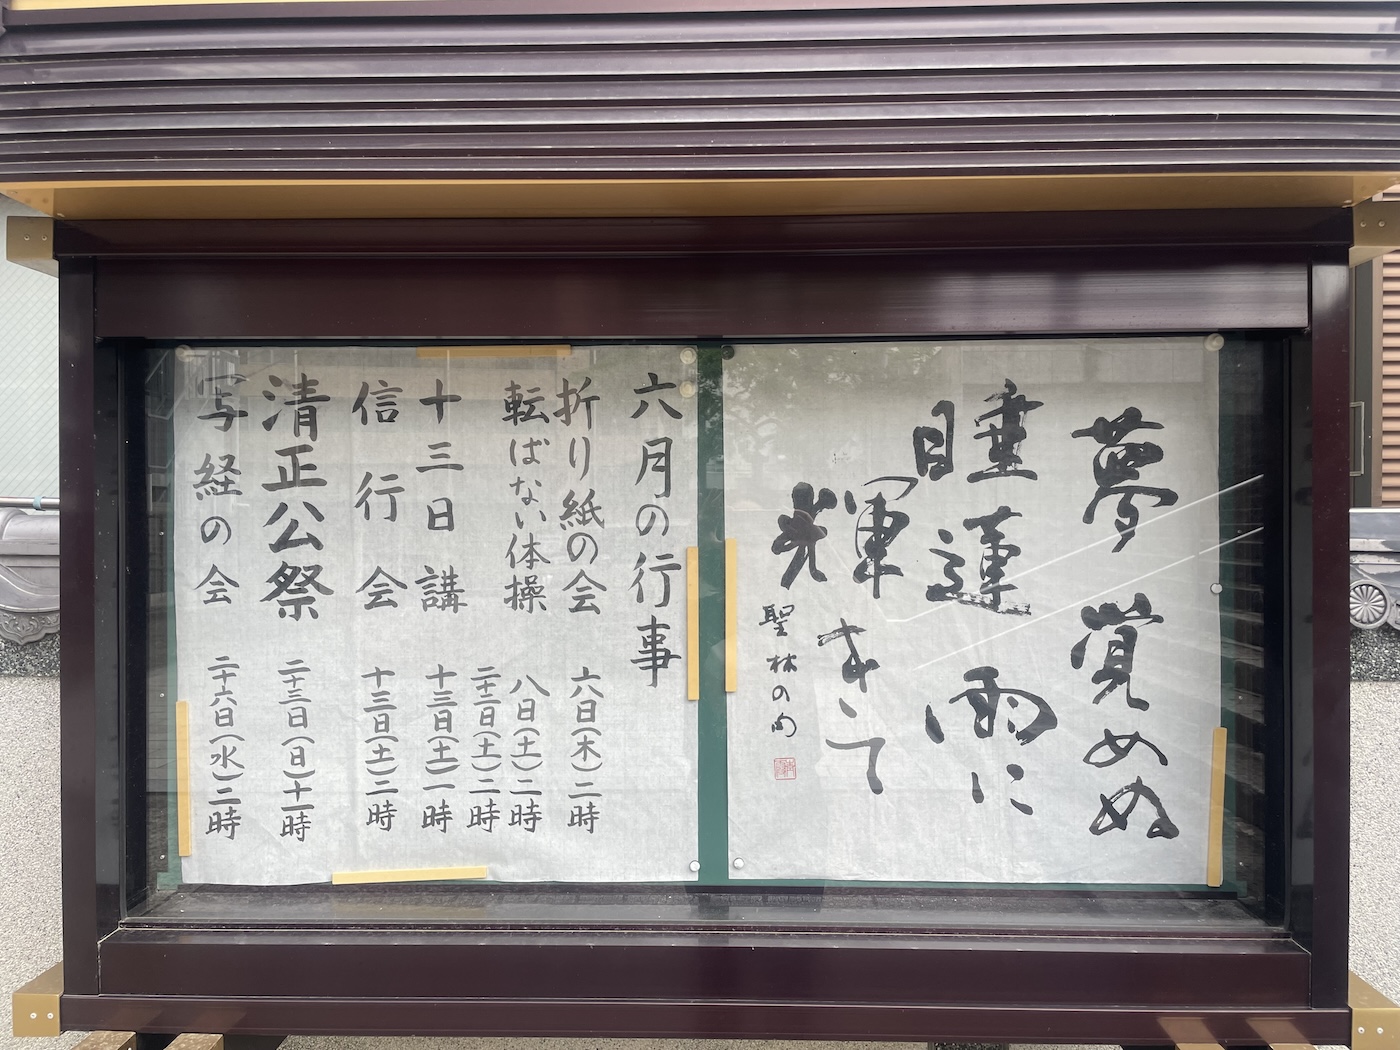 夢覚めぬ
睡蓮雨に
輝きて
聖林の句
六月の行事
折り紙の会 六日(木)二時
転ばない体操 八日(土)二時
二十二日(土)二時
十三日講 十三日(土)一時
信行会 十三日(土)二時
清正公祭 二十三日(日)十一時
写経の会 二十六日(水)二時